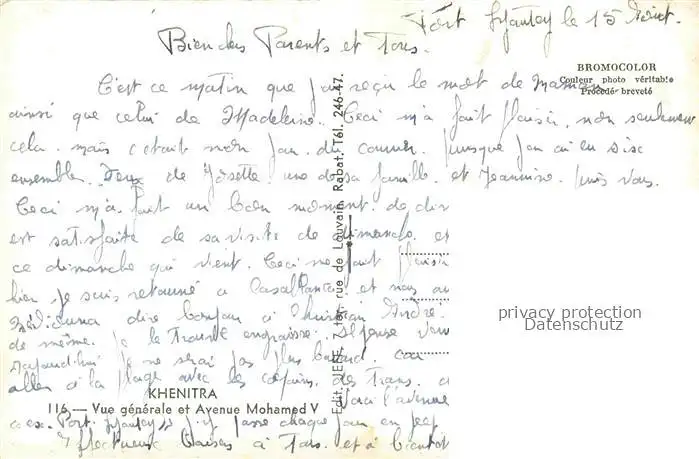 Port Lyautey le 15 Aout.
Bien chers Parents et Tous.
BROMOCOLOR
Couleur photo véritable
Procédé breveté
C'est ce matin que j'ai reçu le mot de Maman
ainsi que celui de Madeleine. Ceci m'a fait plaisir, non seulement
cela. mais c'était mon jour du courrier. puisque j'en ai eu six
ensemble. Deux de Josette. une de sa famille. et Jeannine. puis vous.
Ceci m'a fait un bon moment. de
est satisfaite de sa visite de dimanche. et
ce dimanche qui vient. Ceci me fait plaisir
hier je suis retourné à Casablanca. et nous
dire bonjour à Christian André.
de même. je le trouve engraissé.
Aujourd'hui je ne serai pas plus bavard. car
aller à la plage avec les copains. des Trans.
KHENITRA
Voici l'avenue
116 — Vue générale et Avenue Mohamed V
ex. Port. Lyautey j'y passe chaque jour en jeep
Affectueux Baisers à Tous. et à bientôt
Edit. "JEFF", 7 ter, rue de Louvain, Rabat. Tél. 246-47.
privacy protection
Datenschutz